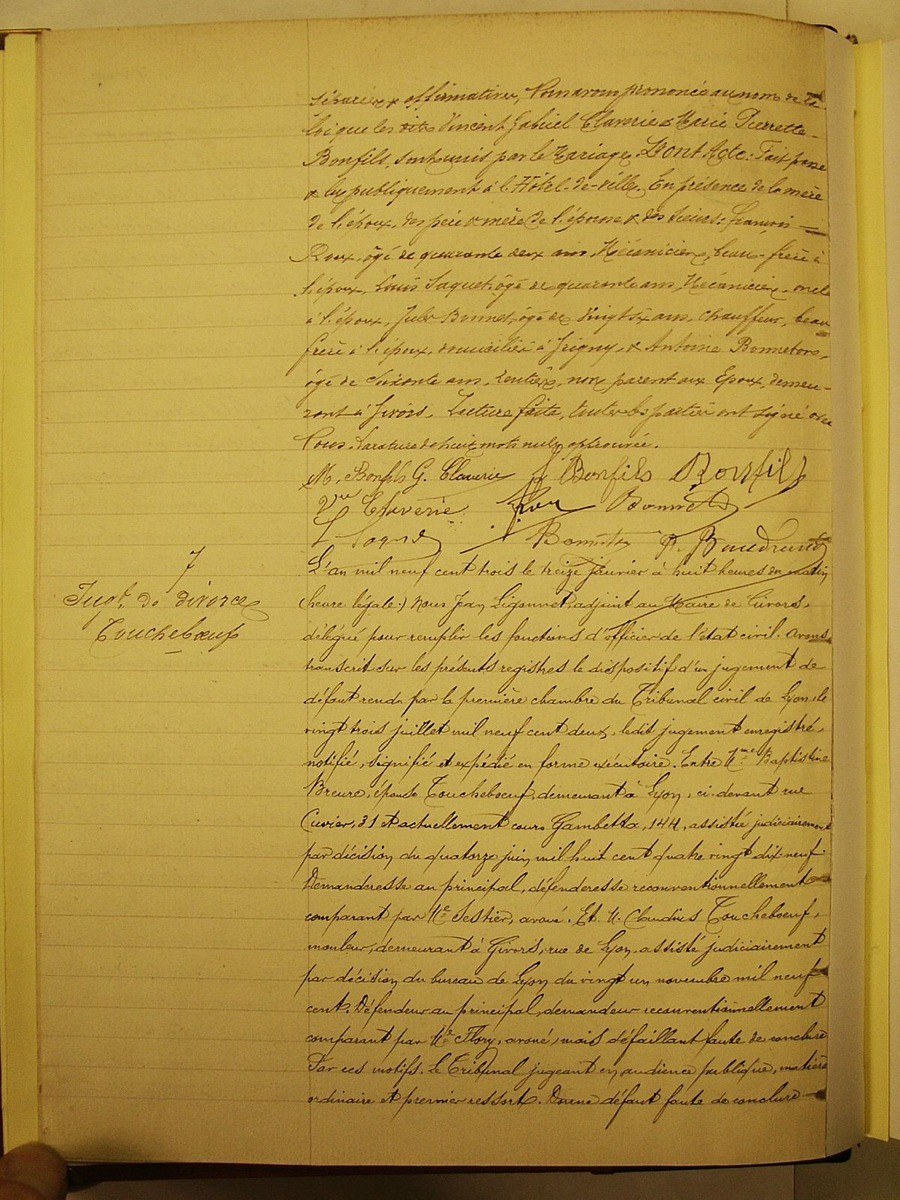 affirmative, Nous avons prononcé au nom de la
Loi que les dits Vincent Gabriel Claverie & Marie Pierrette
Bonfils, sont unis par le Mariage. Dont Acte: Fait, passé
& lu publiquement à l'Hôtel-de-ville. En présence de la mère
de l'époux, des père & mère de l'épouse & des sieurs: François
Roux, âgé de quarante deux ans, Mécanicien, beau-frère à
l'époux, Louis Saquet, âgé de quarante ans, Mécanicien, oncle
à l'époux, Jules Bonnet, âgé de vingt six ans, chauffeur, beau
frère à l'époux, domiciliés à Grigny, & Antoine Bonneton,
âgé de soixante ans, rentier, non parent aux Epoux, demeu-
rant à Givors. Lecture faite, toutes les parties ont signé avec
Nous. Rature de huit mots nuls approuvée.
M. Bonfils G. Claverie J. Bonfils Bonfils
Vve Claverie Roux Bonnet
7
Jugt de divorce
Touchebœuf
L'an mil neuf cent trois le treize janvier à huit heures du matin
(heure légale) Nous Jean Ligonnet, adjoint au Maire de Givors,
délégué pour remplir les fonctions d'officier de l'état civil. Avons
transcrit sur les présents registres le dispositif d'un jugement de
défaut rendu par la première chambre du Tribunal civil de Lyon, le
vingt trois juillet mil neuf cent deux, ledit jugement enregistré,
notifié, signifié et expédié en forme exécutoire. Entre Mme Baptistine
Breure, épouse Toucheboeuf, demeurant à Lyon, ci-devant rue
Cuvier, 31 et actuellement cours Gambetta, 144, assistée judiciairement
par décision du quatorze juin mil huit cent quatre vingt dix neuf
Demanderesse au principal, défenderesse reconventionnellement
comparant par Me Sestier, avoué. Et M. Claudius Toucheboeuf,
mouleur, demeurant à Givors, rue de Lyon, assisté judiciairement
par décision du bureau de Lyon du vingt un novembre mil neuf
cent. Défendeur au principal, demandeur reconventionnellement
comparant par Me Flory, avoué, mais défaillant faute de conclure
Par ces motifs. Le Tribunal jugeant en audience publique, matière
ordinaire et premier ressort. Donne défaut faute de conclure